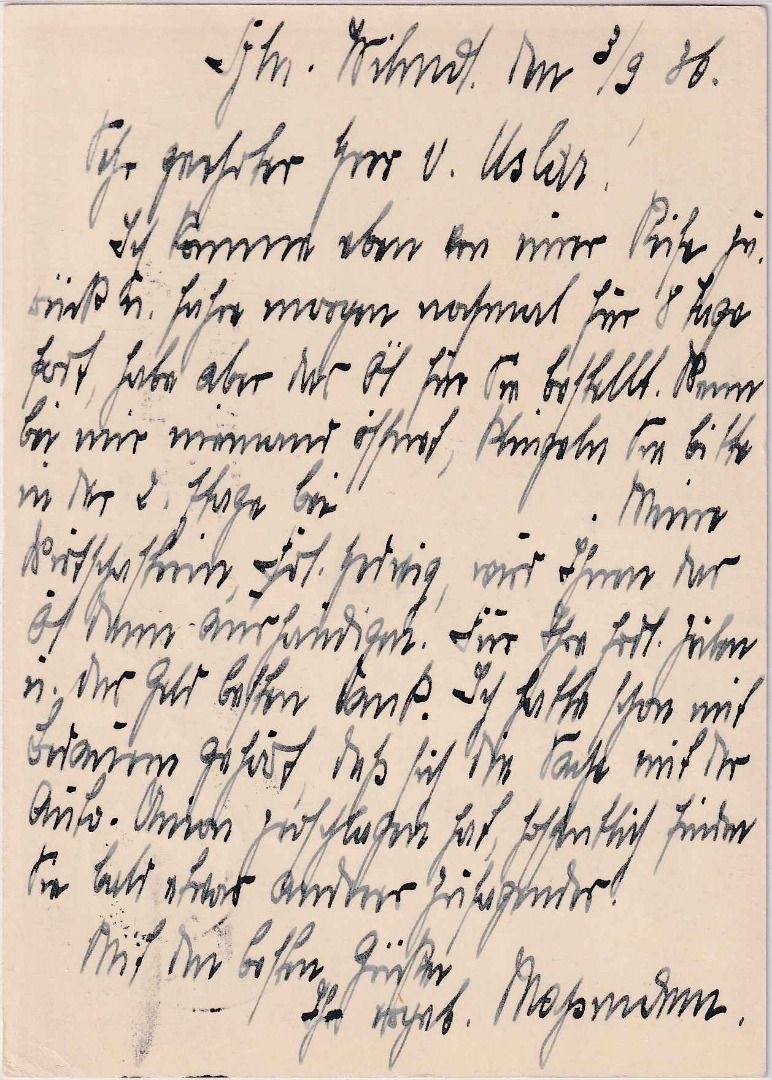 Bln. Wilmdf. den 3/9 36.
Sehr geehrter Herr v. Uslar!
Ich komme eben von einer Reise zu-
rück u. fahre morgen nochmal für 8 Tage
fort, habe aber das Öl für Sie bestellt. Wenn
bei mir niemand öffnet, klingeln Sie bitte
in der 2. Etage bei . Meine
Wirtschafterin, Frl. Hedwig, wird Ihnen das
Öl dann aushändigen. Für Ihre frdl. Zeilen
u. das Geld besten Dank. Ich hatte schon mit
Bedauern gehört, daß sich die Sache mit der
Auto-Union zerschlagen hat, hoffentlich finden
Sie bald etwas anderes Zusagendes!
Mit den besten Grüßen
Ihr ergeb.